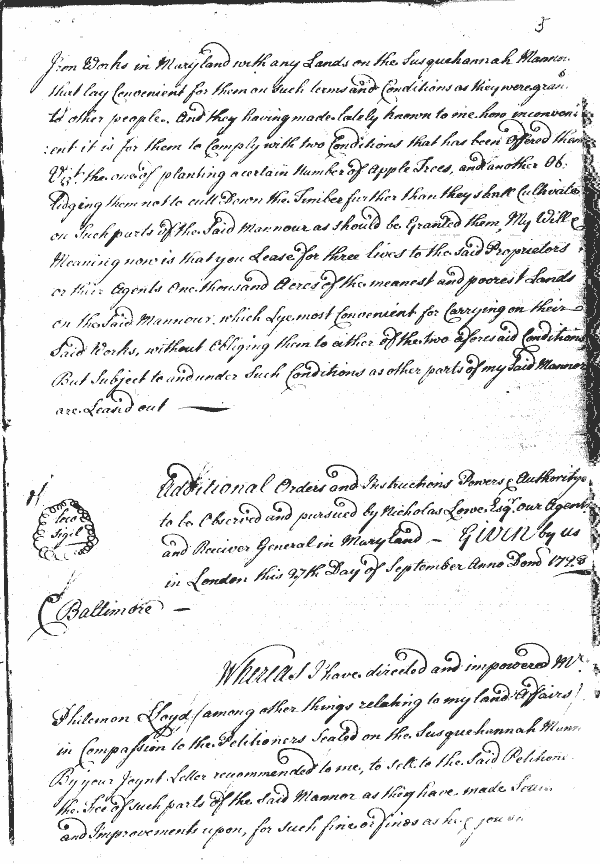 5
Iron Works in Maryland with any Lands on the Susquehannah Mannor
that lay Convenient for them on such terms and Conditions as they were gran
to other people. And they having made lately known to me how inconveni
:ent it is for them to Comply with two Conditions that has been Offered them
Vizt. the one of planting a certain Number of Apple Trees, and another Ob.
lidging them not to cutt Down the Timber further than they shall Cultivate
on Such parts of the Said Mannour as should be Granted them, My Will &
Meaning now is that you Lease for three lives to the said Proprietors
or their Agents One thousand Acres of the meanest and poorest Lands
on the Said Mannour, which Lye most Convenient for Carrying on their
Said Works, without Obliging them to either of the two aforesaid Conditions
But Subject to and under Such Conditions as other parts of my Said Mannor
are Leased out
Additional Orders and Instructions Powers & Authoritys
to be Observed and pursued by Nicholas Lowe Esqr. our Agent
and Reciver General in Maryland – Given by us
in London this 27th Day of September Anno Domi
Loco
Sigil
Baltimore –
Whereas I have directed and impowered Mr.
Philemon Lloyd (among other things relating to my land Affairs)
in Compassion to the Petitioners Seated on the Susquehannah Mann
By your Joynt Letter recommended to me, to sell to the Said Petition
the Fee of such parts of the Said Mannor as they have made
and Improvements upon, for such fine or fines as he you